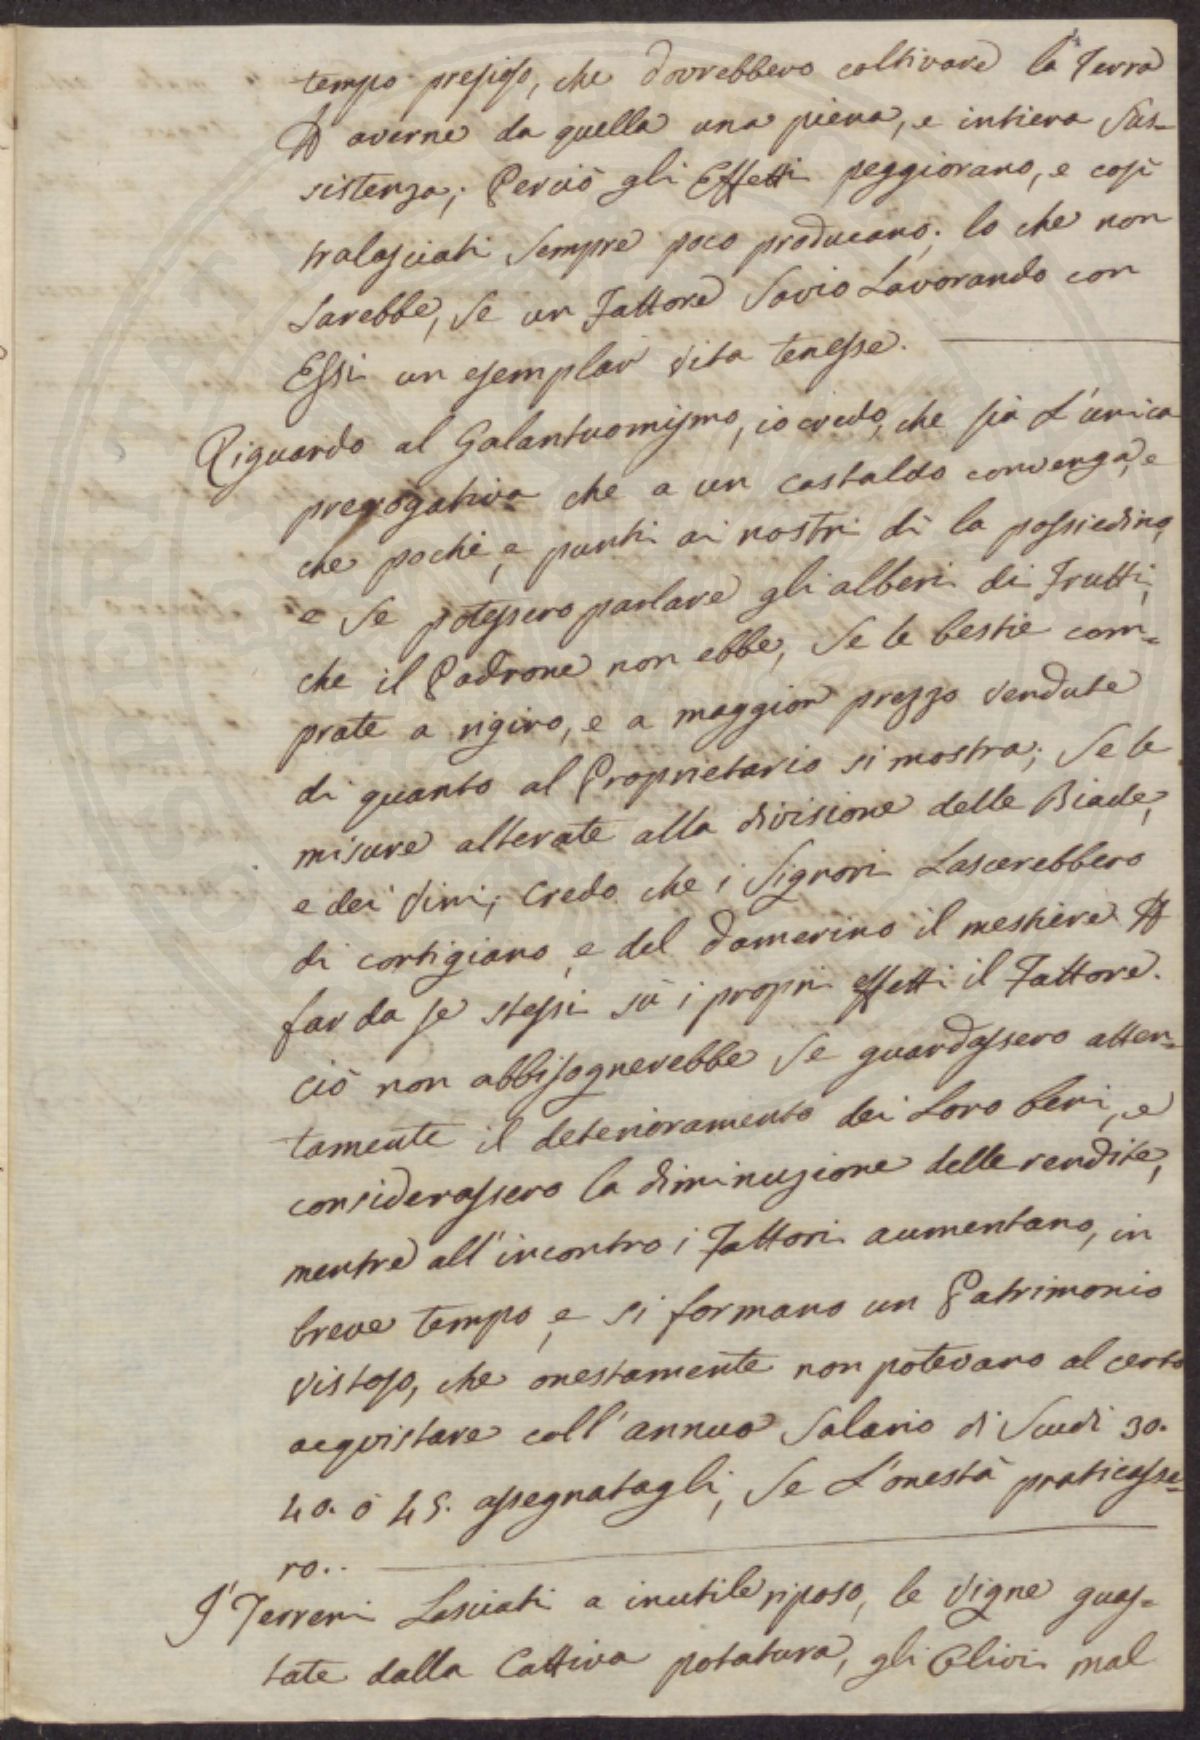 tempo presioso, che dovrebbero coltivare la Terra
P averne da quella una piena, e intiera Sus=
sistenza; Perciò gli Effetti peggiorano, e così
tralasciati Sempre poco producano; lo che non
Sarebbe, Se un Fattore Savio Lavorando con
Essi un esemplar vita tenesse.
Riguardo al Galantuomismo, io credo, che sia L'unica
prerogativa che a un castaldo convenga, e
che pochi, e punti ai nostri dì la possiedino,
e Se potessero parlare gli alberi di Frutti,
che il Padrone non ebbe, Se le bestie com=
prate a rigiro, e a maggior prezzo vendute
di quanto al Proprietario si mostra; Se le
misure alterate alla divisione delle Biade,
e dei vini, credo che i Signori Lascerebbero
di cortigiano, e del damerino il mestiere P
far da se stessi sù i propri effetti il Fattore.
Ciò non abbisognerebbe Se guardassero atten=
tamente il deterioramento dei Loro beni, e
considerassero la diminuzione delle rendite,
mentre all'incontro i Fattori aumentano, in
breve tempo, e si formano un Patrimonio
vistoso, che onestamente non potevano al certo
acquistare coll'annuo Salario di Scudi 30.
40. ò 45. assegnatagli, Se L'onestà praticasse=
ro..
I' Terreni Lasciati a inutile riposo, le vigne guas=
tate dalla Cattiva potatura, gli Olivi mal